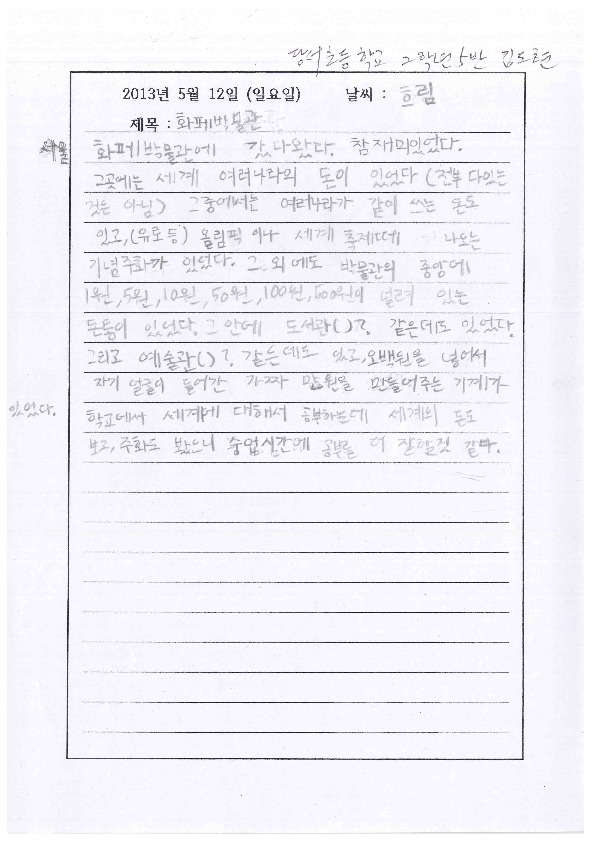 초등학교 2학년 5반 김도현
2013년 5월 12일 (일요일) 날씨 : 흐림
제목 : 화폐박물관
서울 화폐박물관에 갔나왔다. 참 재미있었다.
그곳에는 세계 여러나라의 돈이 있었다 (전부 다있는
것은 아님) 그중에서는 여러나라가 같이 쓰는 돈도
있고, (유로등) 올림픽 이나 세계 축제때 나오는
기념주화가 있었다. 그 외에도 박물관의 중앙에
1원, 5원, 10원, 50원, 100원, 500원이 널려 있는
돈통이 있었다. 그 안에 도서관( )?, 같은데도 있었다.
그리고 예술관( )?, 같은데도 있고, 오백원을 넣어서
자기 얼굴이 들어간 가짜 만원을 만들어주는 기계가
있었다. 학교에서 세계에 대해서 공부하는데 세계의 돈도
보고, 주화도 봤으니 수업시간에 공부를 더 잘할것 같다.